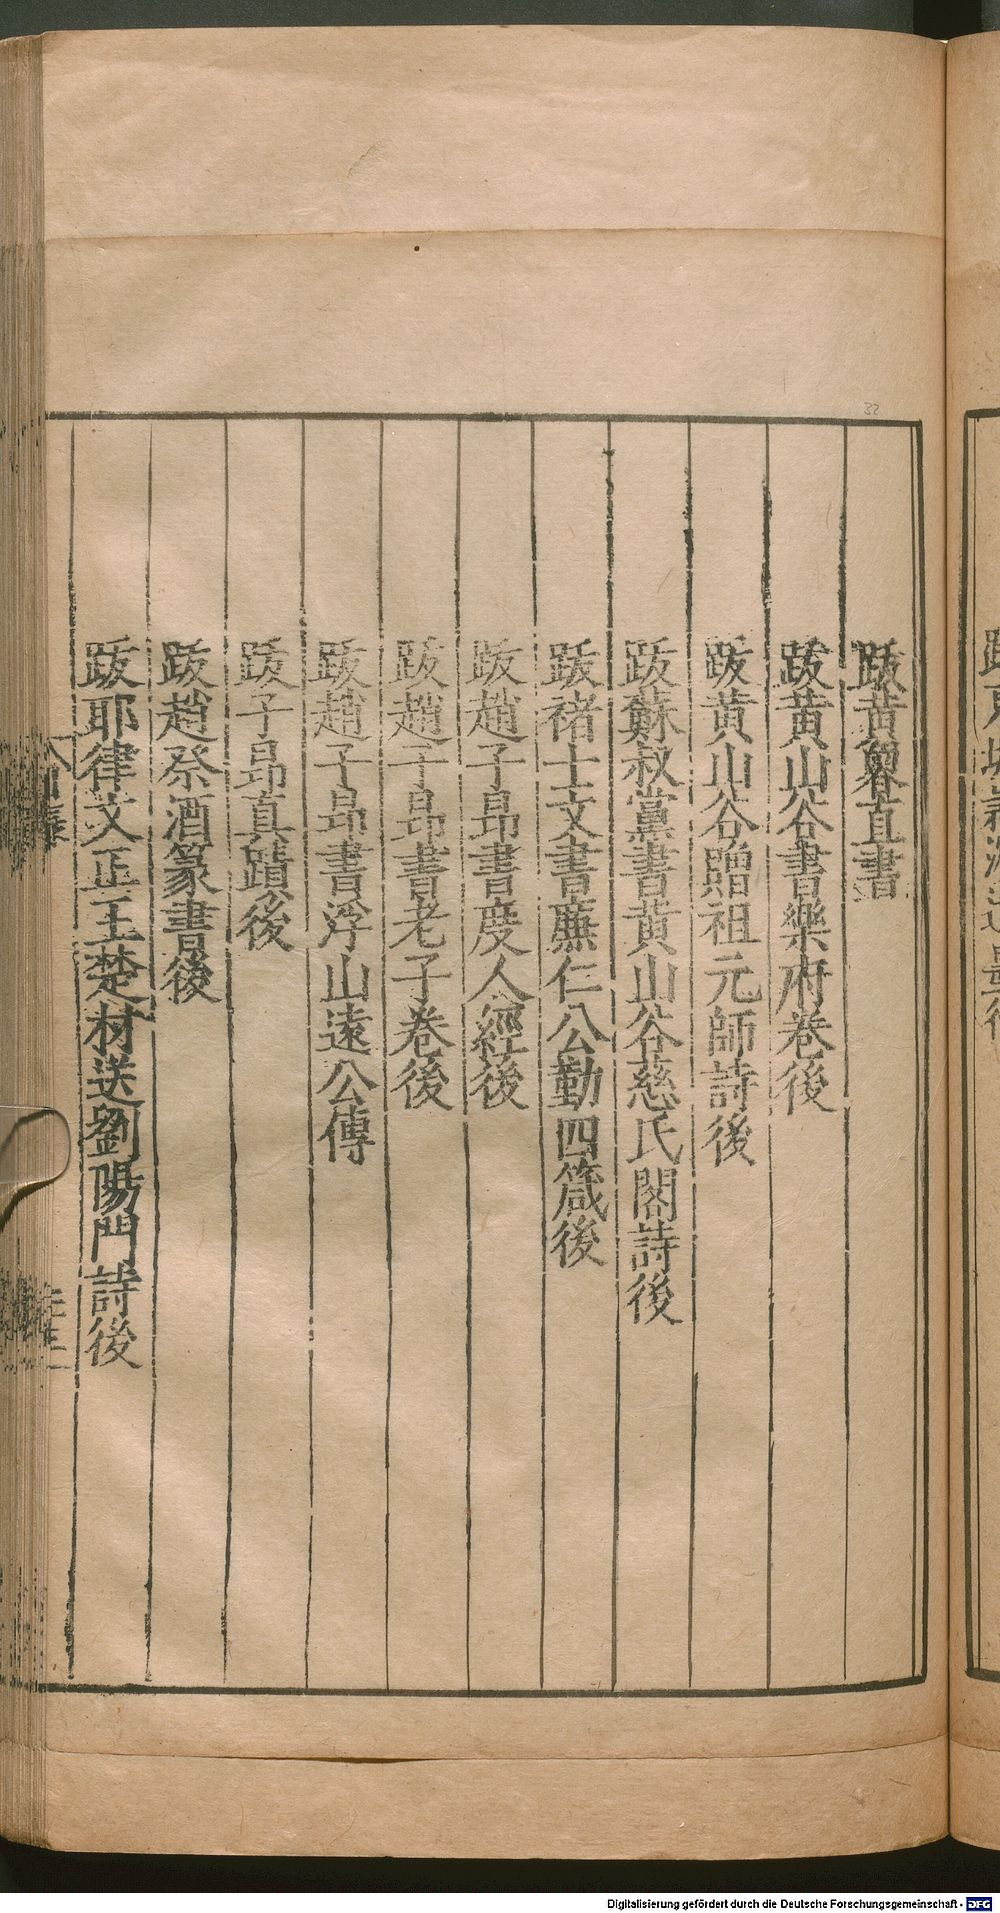 跋黃魯直書
跋黃山谷書樂府卷後
跋黃山谷贈祖元師詩後
跋蘇叔黨書黃山谷慈氏閣詩後
跋褚士文書廉仁公勤四箴後
跋趙子昻書度人經後
跋趙子昻書老子卷後
跋趙子昻書浮山遠公傳
跋子昻真蹟後
跋趙祭酒篆書後
跋耶律文正王楚材送劉陽門詩後
32
Digitalisierung gefördert durch die Deutsche Forschungsgemeinschaft - DFG